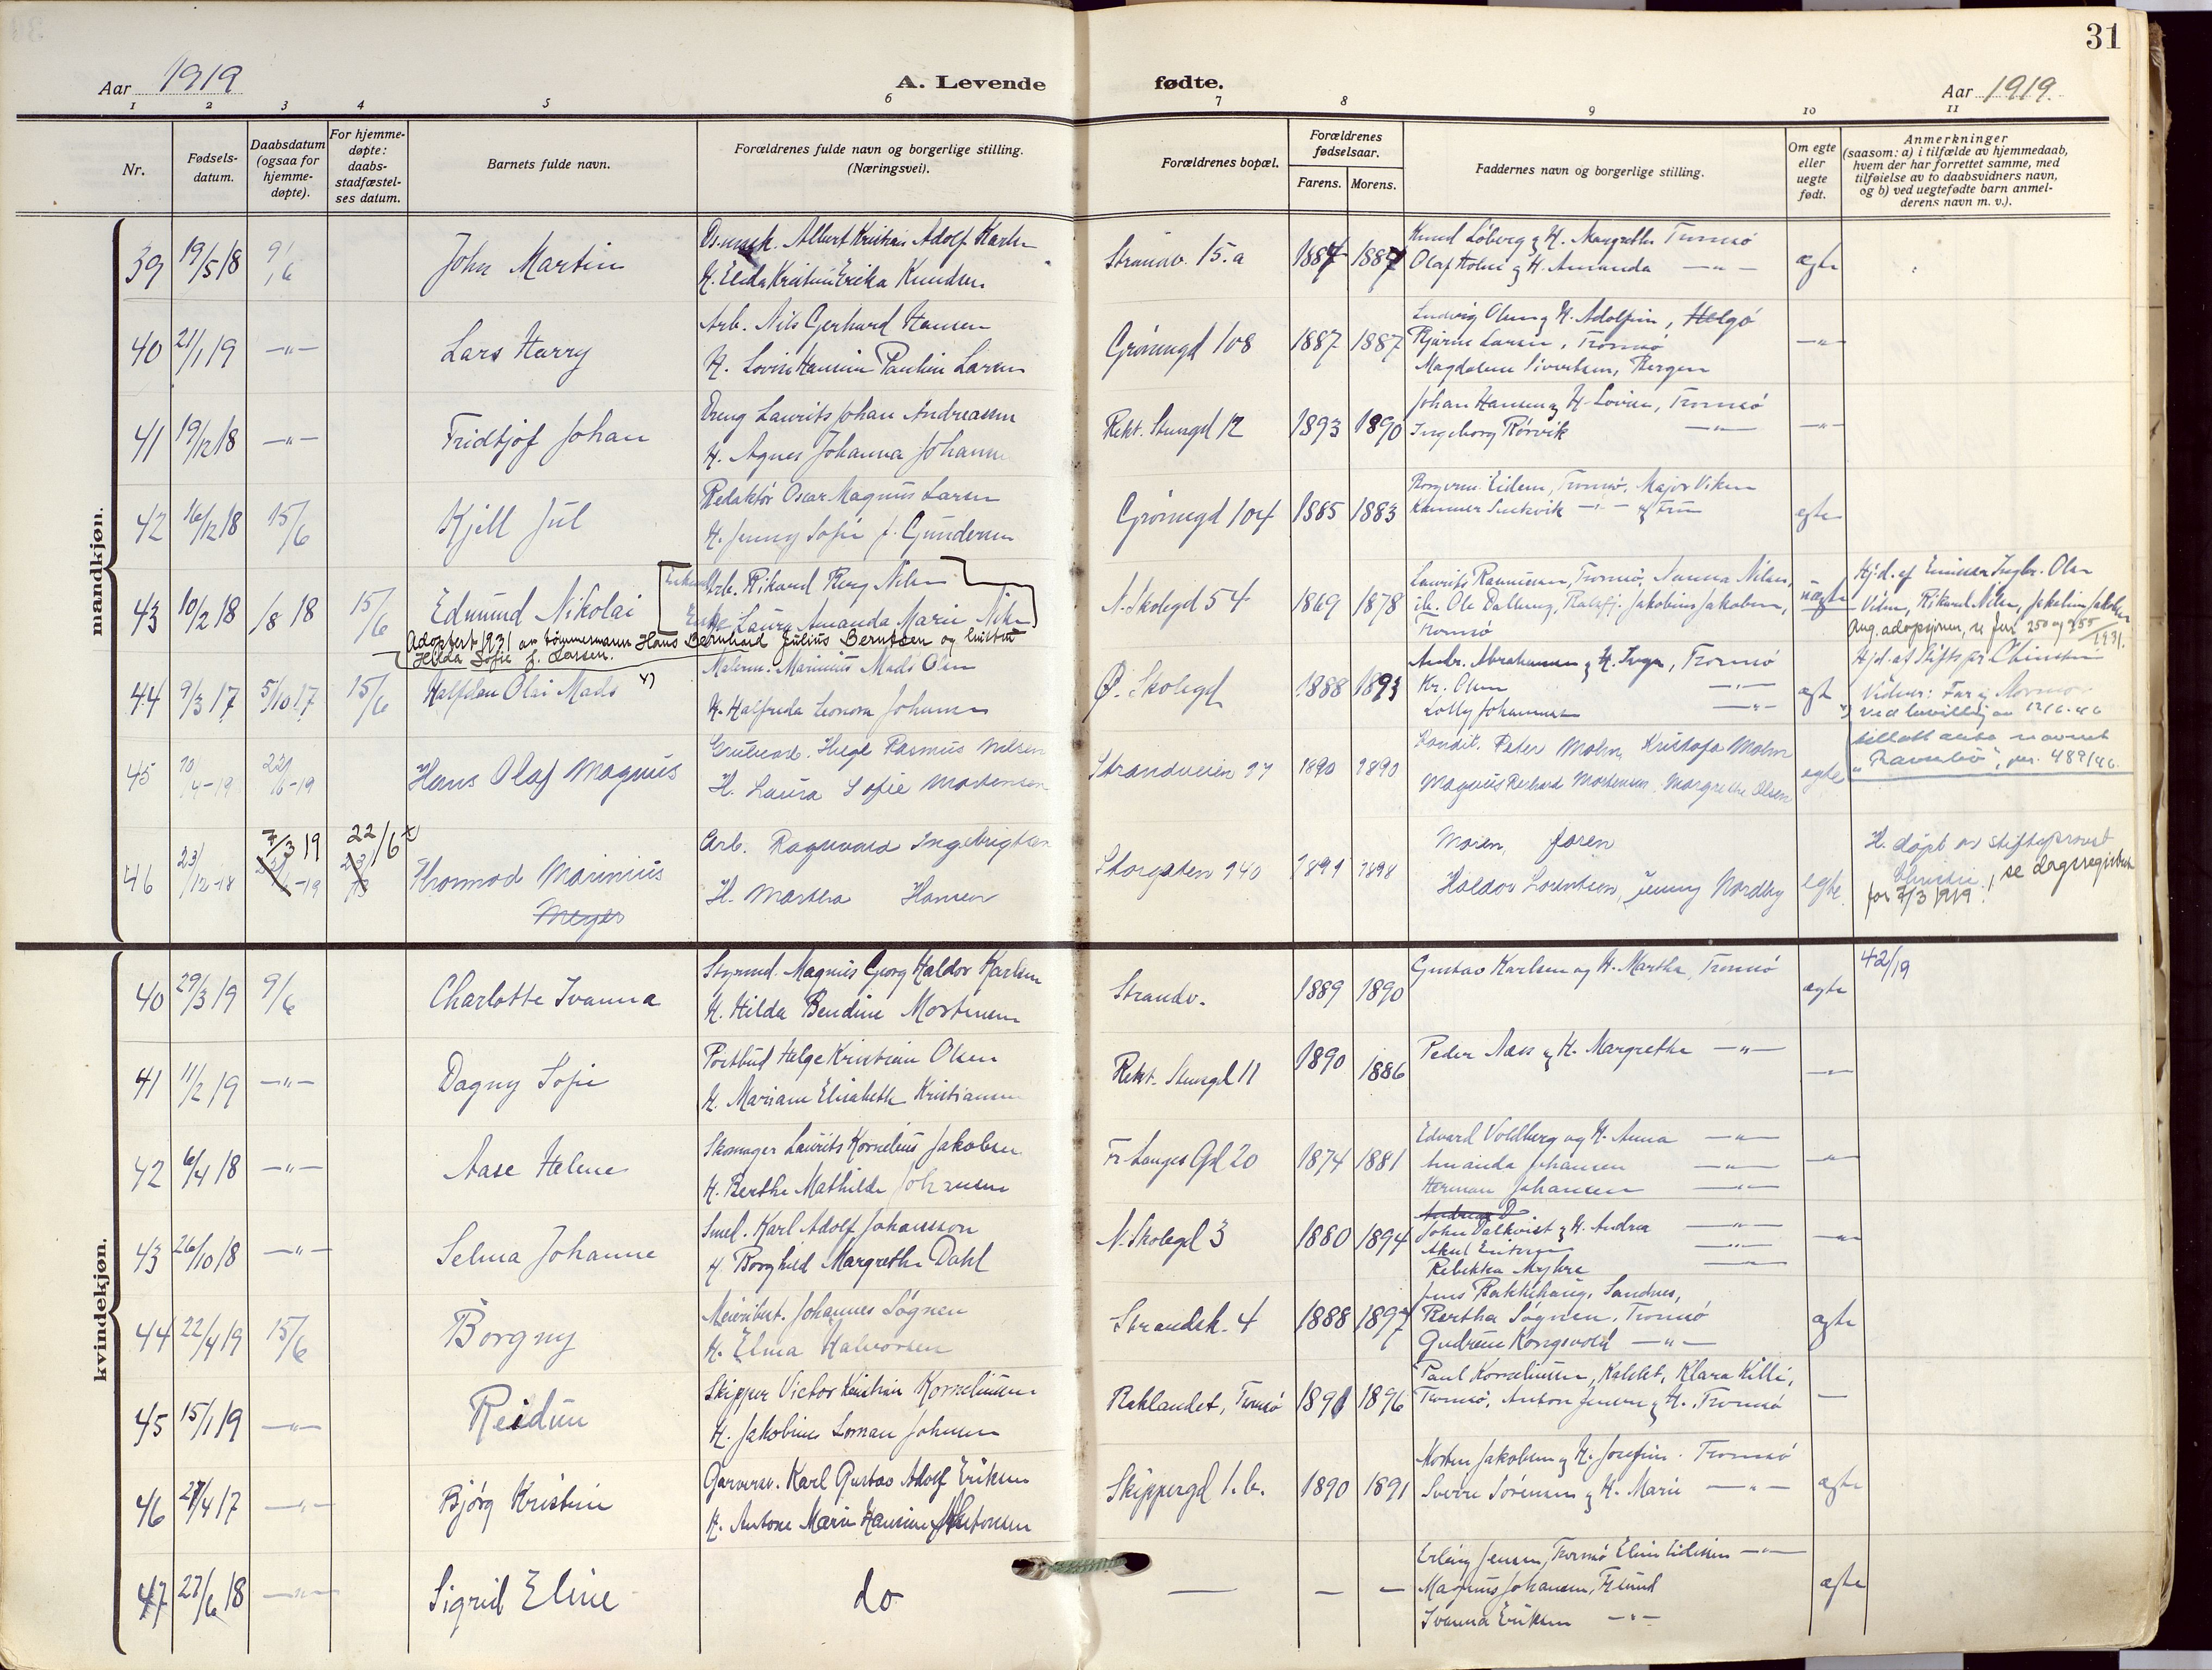 31
Aar 1919
A. Levende fødte.
Aar 1919.
1 2 3 4 5 6 7 8 9 10 11
Nr.
Fødsels-
datum.
Daabsdatum
(ogsaa for
hjemme-
døpte).
For hjemme-
døpte:
daabs-
stadfæstel-
ses datum.
Barnets fulde navn.
Forældrenes fulde navn og borgerlige stilling.
(Næringsvei).
Forældrenes bopæl.
Forældrenes
fødselsaar.
Farens. Morens.
Faddernes navn og borgerlige stilling.
Om egte
eller
uegte
født.
Anmerkninger
(saasom: a) i tilfælde av hjemmedaab,
hvem der har forrettet samme, med
tilføielse av to daabsvidners navn,
og b) ved uegtefødte barn anmel-
derens navn m. v.).
mandkjøn.
39 19/5 18 9/6 John Martin
Albert Kristian Adolf Karls
H. Elida Kristine Erika Knudsen
Strandv. 15.a 1887 1887
Knud Løberg & H. Margrethe Tromsø
Olaf Holm & H. Amanda —"—
egte
40 21/1 19 —"— Lars Harry
Arb. Nils Gerhard Hansen
H. Lovise Hansine Pauline Larsen
Grønnegd 108 1887 1887
Ludvig Olsen & H. Adolfine, Helgø
Bjarne Larsen, Tromsø
Magdalene Sivertsen, Bergen
—"—
41 19/12 18 —"— Fridtjof Johan
Dreng Laurits Johan Andreassen
H. Agnes Johanna Johanne
Rekt. Steengd 12 1893 1890
Johan Hansen & H. Lovise, Tromsø
Ingeborg Rørvik —"—
—"—
42 16/12 18 15/6 Kjell Jul
Redaktør Oscar Magnus Larsen
H. Jenny Sofie f. Gundersen
Grønnegd 104 1885 1883
Borgerm. Eidem, Tromsø, Major Viken
—"— & Frue
egte
43 10/2 18 /8 18 15/6 Edmund Nikolai
Arb. Rikard Berg Nilsen
Enke Laura Amanda Marie Nilsen
N. Skolegd 54 1869 1878
Laurits Rasmussen, Tromsø, Nanna Nilsen,
ib. Ole Dalberg, Balsfj. Jakobine Jakobsen,
Tromsø
uegte
Hj.d. af Emissær Ingbr. Olsen
Vidn. Rikard Nilsen, Jakobine Jakobsen
Ang. adopsjonen, se jnr 250 og 255/1931.
Adoptert 1931 av tømmermann Hans Bernhard Julius Berntsen og hustru
Hilda Sofie f. Larsen.
44 9/3 17 5/10 17 15/6 Halfdan Olai Mads x)
Malerm. Marinius Mads Olsen
H. Halfrida Leonora Johansen
Ø. Skolegd 1888 1893
Andr. Abrahamsen & H. Inga, Tromsø
Kr. Olsen —"—
Lolly Johannesen —"—
egte
Hj.d. af Stiftspr. Christie
Vidner: Far & Mormor
x) Ved bevilling av 12/6-46
tillatt anta navnet
"Ramsbø", jnr. 489/46.
45 10/4-19 22/6-19 Hans Olaf Magnus
Helge Rasmus Nilsen
H. Laura Sofie Mortensen
Strandveien 17 1890 1890
Kondit. Peter Molvn, Kristofa Molvn
Magnus Richard Mortensen, Margrethe Olsen
egte
46 23/12-18 7/3 19 22/6 Thormod Marinius
Meyer
Arb. Ragnvald Ingebrigtsen
H. Martha Hansen
Storgaten 140 1891 1898
Moren, faren
Haldor Lorentsen, Jenny Nordby
egte.
H. døpt av stiftsprovst
Christie, se dagsregisteret
for 7/3 1919.
kvindekjøn.
40 29/3 19 9/6 Charlotte Ivanna
Styrmd. Magnus Georg Haldor Karlsen
H. Hilda Bendine Mortensen
Strandv. 1889 1890
Gustav Karlsen og H. Martha, Tromsø
egte
42/19
41 11/2 19 —"— Dagny Sofie
Postbud Helge Kristian Olsen
H. Mariane Elisabeth Kristiansen
Rekt. Steengd 11 1890 1886
Peder Næss & H. Margrethe —"—
—"—
42 6/4 18 —"— Aase Helene
Skomager Laurits Kornelius Jakobsen
H. Berthe Mathilde Johansen
Fr. Langes Gd 20 1874 1881
Edvard Voldberg og H. Anna —"—
Amanda Johansen —"—
Herman Johansen —"—
—"—
43 26/10 18 —"— Selma Johanne
Smed. Karl Adolf Johansson
H. Borghild Margrethe Dahl
N. Skolegd 3 1880 1894
John Dalkvist & H. Andrea —"—
Rebekka Myhre —"—
—"—
44 22/4 19 15/6 Borgny
Johannes Søgnen
H. Elma Halvorsen
Strandsk. 4 1888 1897
Jens Bakkehaug, Sandnes,
Bertha Søgnen, Tromsø
Gudrun Kongsvold —"—
egte
45 15/1 19 —"— Reidun
Skipper Victor Kristian Korneliussen
H. Jakobine Lornau Johnsen
Baklandet, Tromsø 1891 1896
Paul Korneliussen, Kaldslet, Klara Killi,
Tromsø, Anton Jensen & H., Tromsø
—
46 27/4 17 —"— Bjørg Kristine
Garversv. Karl Gustav Adolf Eriksen
H. Antone Marie Hansine Antonsen
Skippergd 1.b. 1890 1891
Morten Jakobsen & H. Josefine. Tromsø
Sverre Sørensen & H. Marie —"—
egte
47 27/6 18 —"— Sigrid Eline
do — — —
Erling Jensen, Tromsø Eline Eidissen —"—
Magnus Johansen, Frlund
Ivanna Eriksen —"—
egte